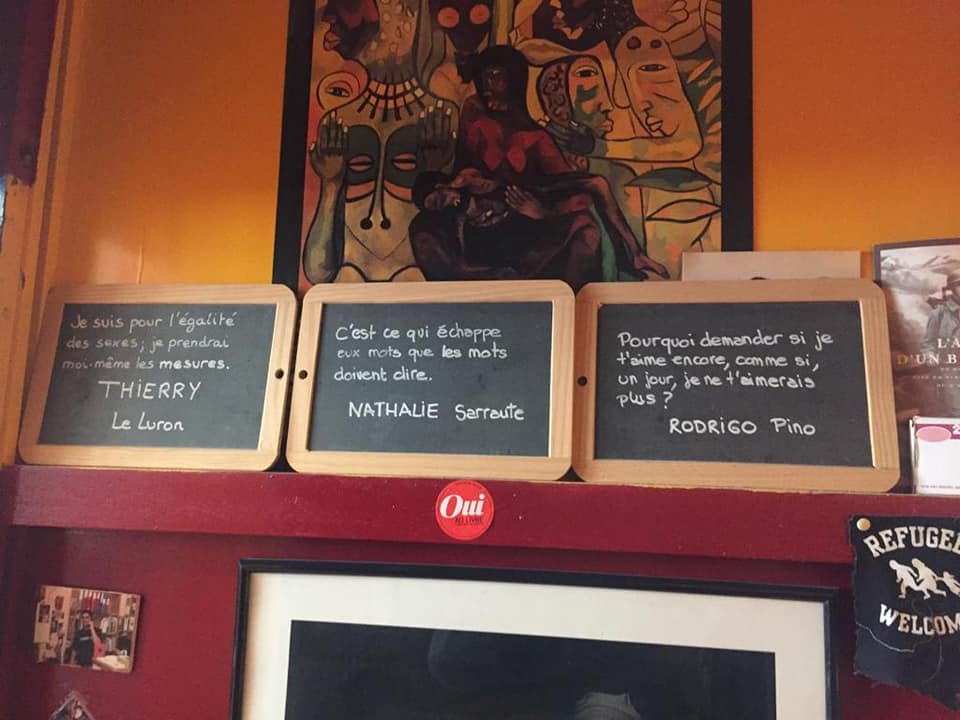 Je suis pour l'égalité
des sexes; je prendrai
moi-même les mesures.
THIERRY
Le Luron
C'est ce qui échappe
aux mots que les mots
doivent dire.
NATHALIE Sarraute
Pourquoi demander si je
t'aime encore, comme si,
un jour, je ne t'aimerais
plus ?
RODRIGO Pino
L'A
D'UN B
Oui
AU LIVRE
REFUGEE
WELCOM